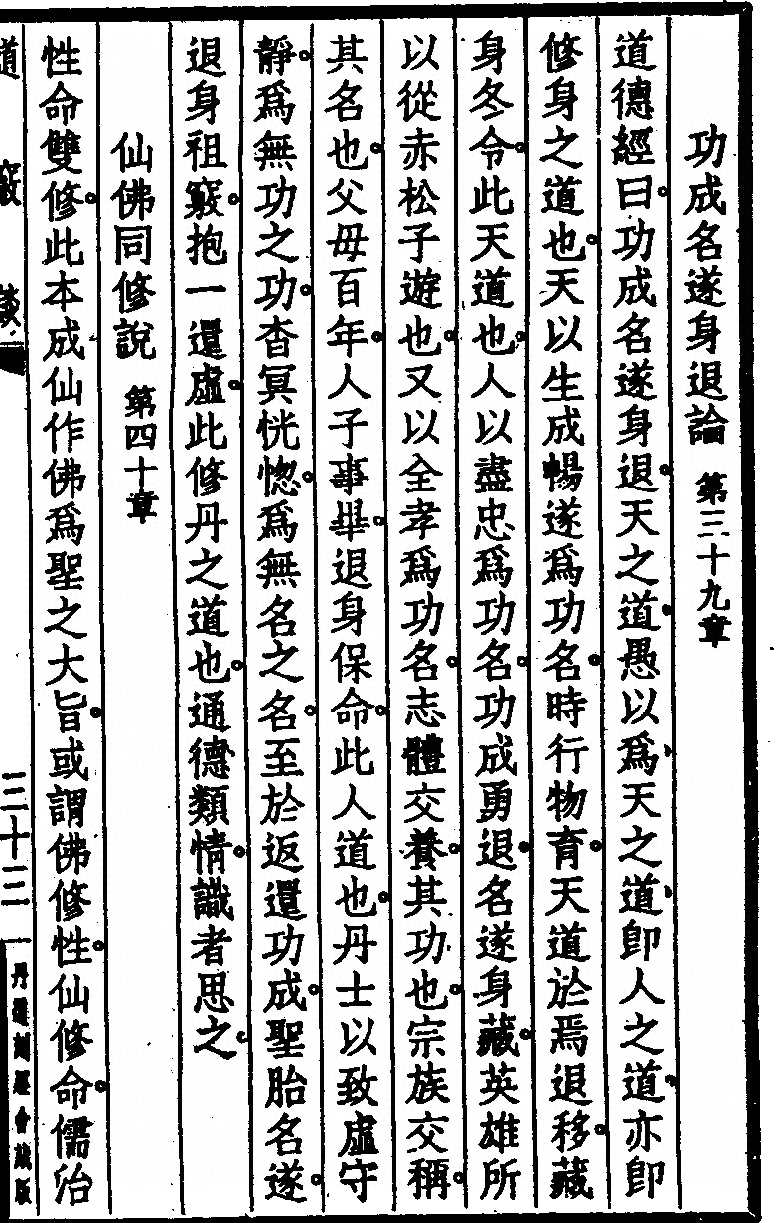 功成名遂身退論 第三十九章
道德經曰。功成名遂身退。天之道。愚以爲、天之道、卽人之道、亦卽
修身之道也。天以生成暢遂爲功名。時行物育。天道於焉退移。藏
身冬令。此天道也。人以盡忠爲功名。功成勇退。名遂身藏。英雄所
以從赤松子遊也。又以全孝爲功名。志體交養。其功也。宗族交稱。
其名也。父母百年。人子事畢。退身保命。此人道也。丹士以致虛守
靜。爲無功之功。杳冥恍惚。爲無名之名。至於返還功成。聖胎名遂。
退身祖竅。抱一還虛。此修丹之道也。通德類情。識者思之。
仙佛同修說 第四十章
性命雙修。此本成仙作佛爲聖之大旨。或謂佛修性。仙修命。儒治
道竅談
三十三
丹道刻經會藏版